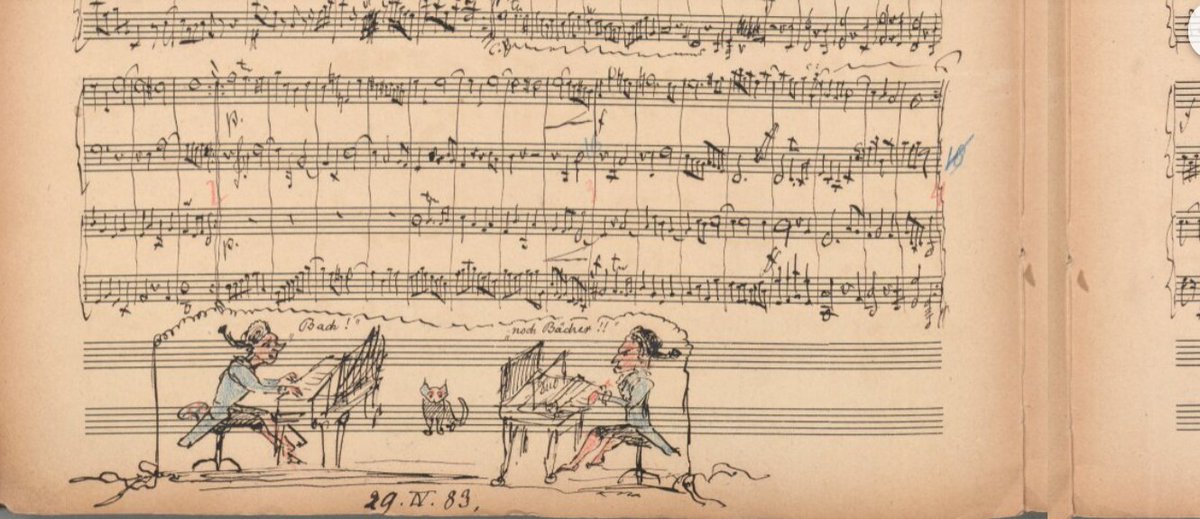 p.
f
p.
f
"Bach!"
"noch Bächer?!"
29. IV. 83.